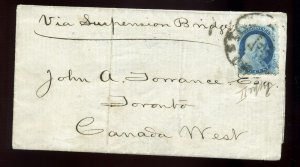 Via Suspension Bridge
John A. Torrance Esq
Toronto
Canada West